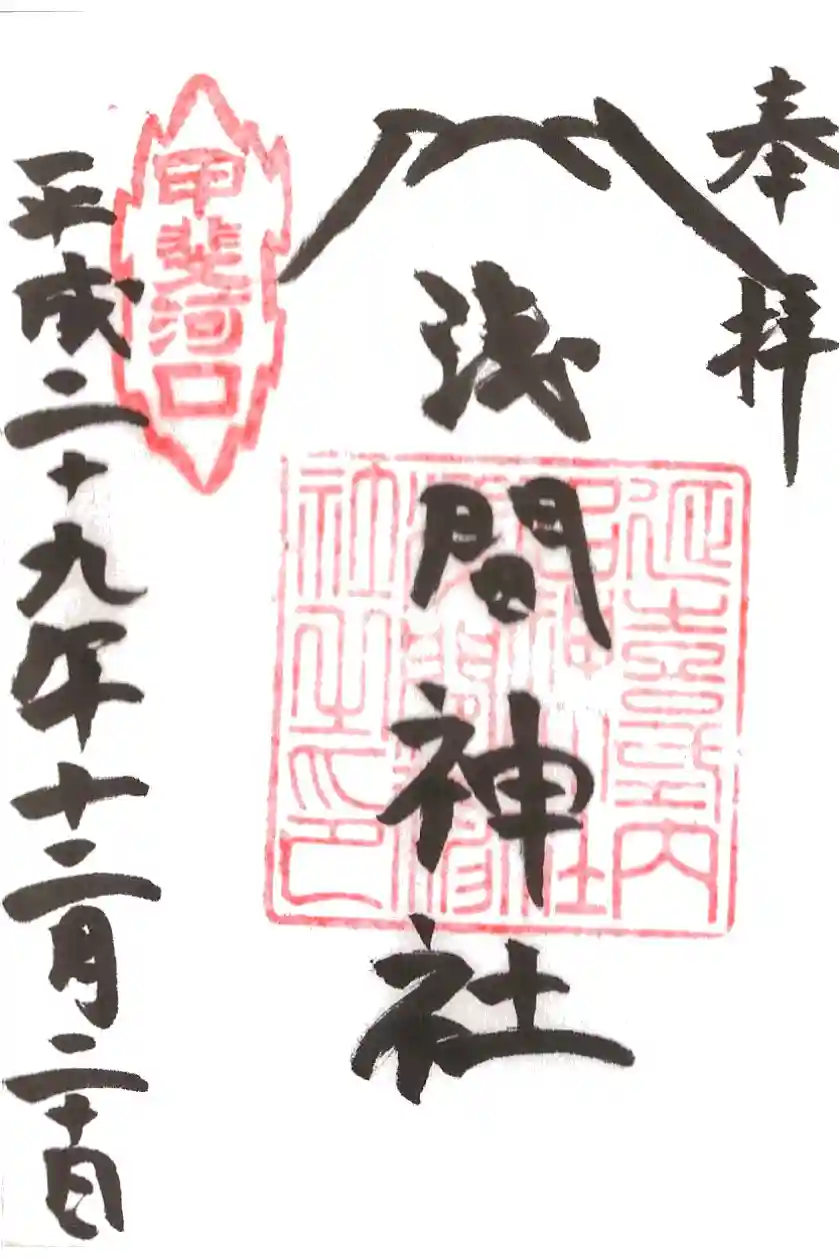 奉拝
浅間神社
延喜式内
名神大社
社之印
甲斐河口
平成二十九年十二月二十日